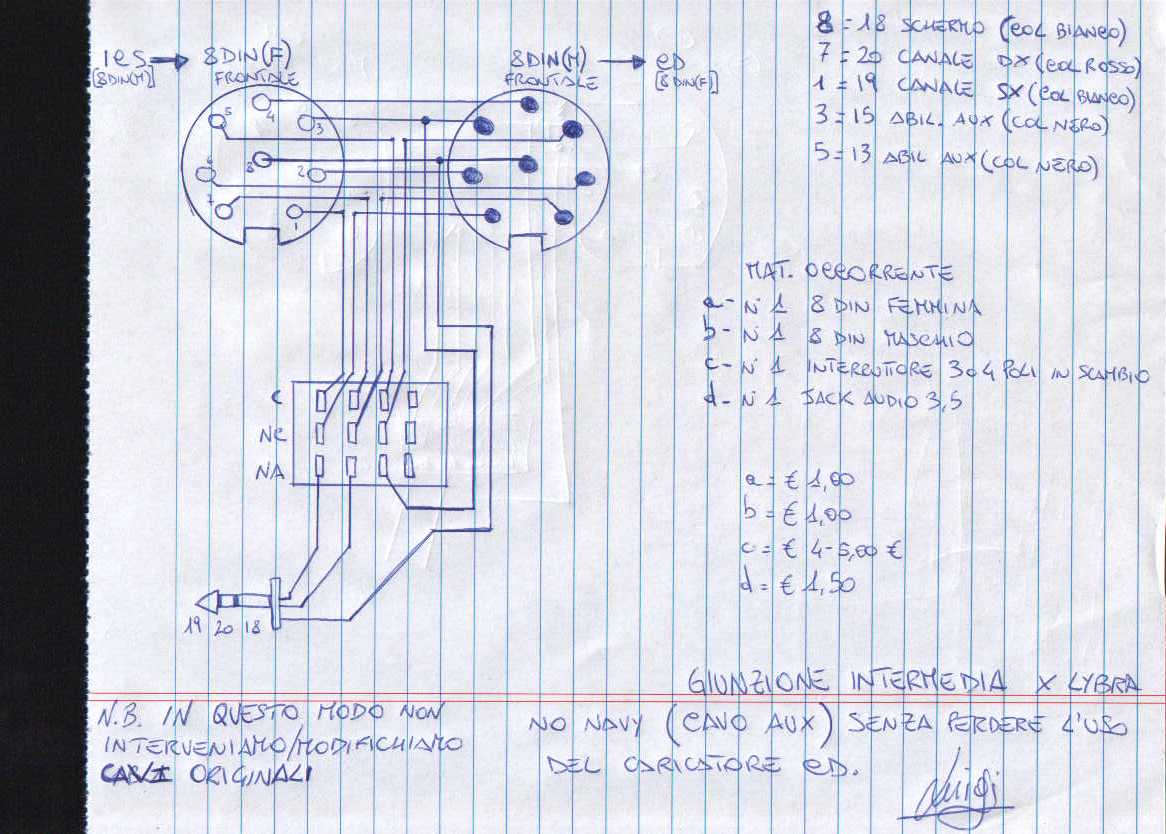 ICS → 8DIN(F)
[8DIN(M)] FRONTALE
8DIN(M) → CD
FRONTALE [8DIN(F)]
8 = 18 SCHERMO (COL BIANCO)
7 = 20 CANALE DX (COL ROSSO)
1 = 19 CANALE SX (COL BIANCO)
3 = 15 ABIL. AUX (COL NERO)
5 = 13 ABIL AUX (COL NERO)
5
4
3
8
2
6
7
1
MAT. OCCORRENTE
a - N 1 8 DIN FEMMINA
b - N 1 8 DIN MASCHIO
c - N 1 INTERRUTTORE 3 o 4 POLI IN SCAMBIO
d - N 1 JACK AUDIO 3,5
C
NC
NA
a = € 1,00
b = € 1,00
c = € 4-5,00 €
d = € 1,50
19 20 18
GIUNZIONE INTERMEDIA X LYBRA
NO NAVY (CAVO AUX) SENZA PERDERE L'USO
DEL CARICATORE CD.
Luigi
N.B. IN QUESTO MODO NON
INTERVENIAMO/MODIFICHIAMO
CAVI ORIGINALI